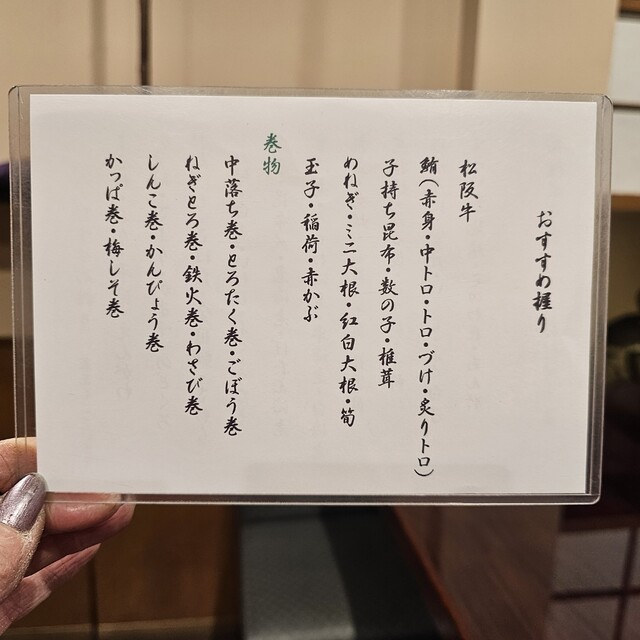 おすすめ握り
松阪牛
鮪(赤身・中トロ・トロ・づけ・炙りトロ)
子持ち昆布・数の子・椎茸
めねぎ・ミニ大根・紅白大根・筍
玉子・稲荷・赤かぶ
巻物
中落ち巻・とろたく巻・ごぼう巻
ねぎとろ巻・鉄火巻・わさび巻
しんこ巻・かんぴょう巻
かっぱ巻・梅しそ巻